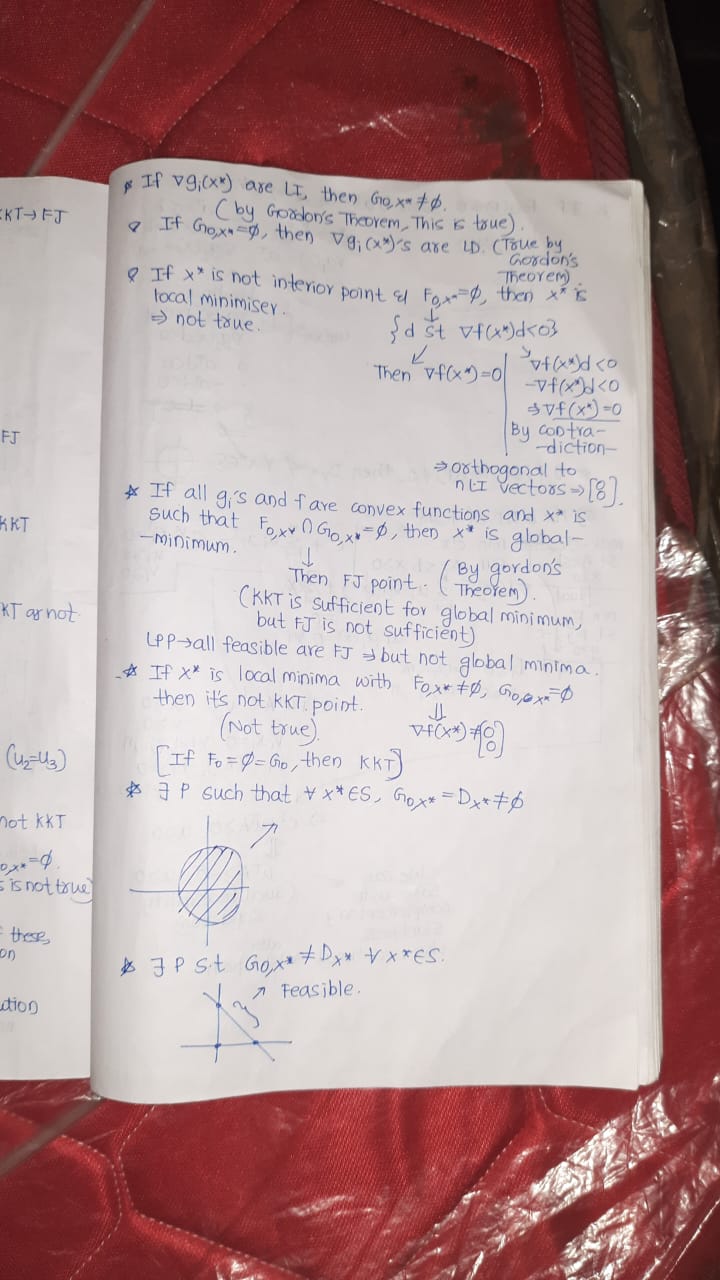 KKT→FJ
FJ
KKT
KT or not
(u₂=u₃)
not KKT
0,x*=φ.
s is not true)
f these,
on
ution
* If ∇gᵢ(x*) are LI, then G₀,x* ≠ φ.
(by Gordon's Theorem, This is true).
If G₀,x*=φ, then ∇gᵢ(x*)'s are LD. (True by
Gordon's
Theorem).
If x* is not interior point & F₀,x*=φ, then x* is
local minimiser.
⇒ not true.
↓
{d st ∇f(x*)d<0}
↙ ↘
Then ∇f(x*)=0
∇f(x*)d<0
-∇f(x*)d<0
⇒∇f(x*)=0
By contra-
-diction-
⇒orthogonal to
n LI vectors⇒[0 0].
* If all gᵢ's and f are convex functions and x* is
such that F₀,x* ∩ G₀,x*=φ, then x* is global-
-minimum.
↓
Then FJ point. (By gordon's
Theorem).
(KKT is sufficient for global minimum,
but FJ is not sufficient)
LPP→all feasible are FJ ⇒ but not global minima.
* If x* is local minima with F₀,x*≠φ, G₀,x*=φ
then it's not KKT point.
(Not true).
⇓
∇f(x*)≠[0 0]
[If F₀=φ=G₀, then KKT]
* ∃ P such that ∀ x*∈S, G₀,x* = Dx*≠φ
* ∃ P s.t G₀,x* ≠ Dx* ∀ x*∈S.
↗ Feasible.